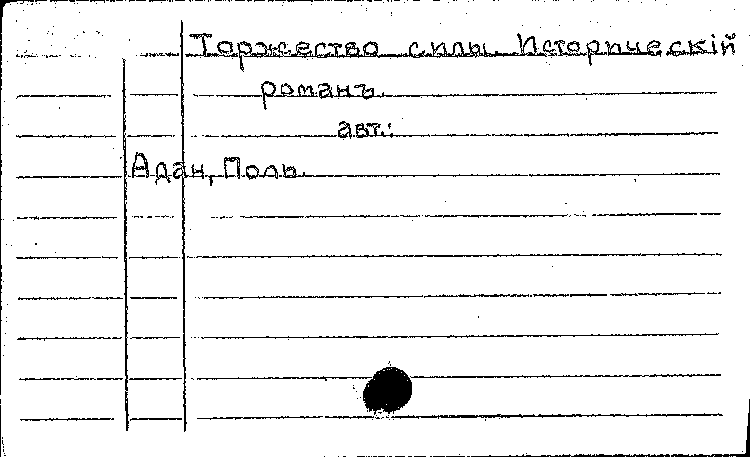 Торжество силы. Историческій
романъ.
авт.:
Адан, Поль.